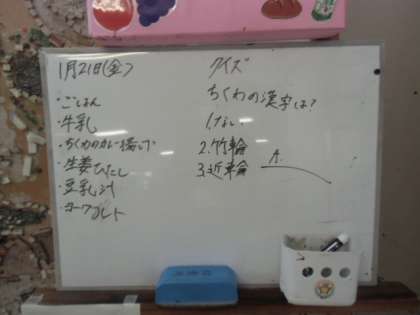 1月21日(金)
・ごはん
・牛乳
・ちくわのカレー揚げ
・生姜ひたし
・豆乳汁
・ヨーグルト
クイズ
ちくわの漢字は?
1.なし
2.竹輪
3.近輪
A.